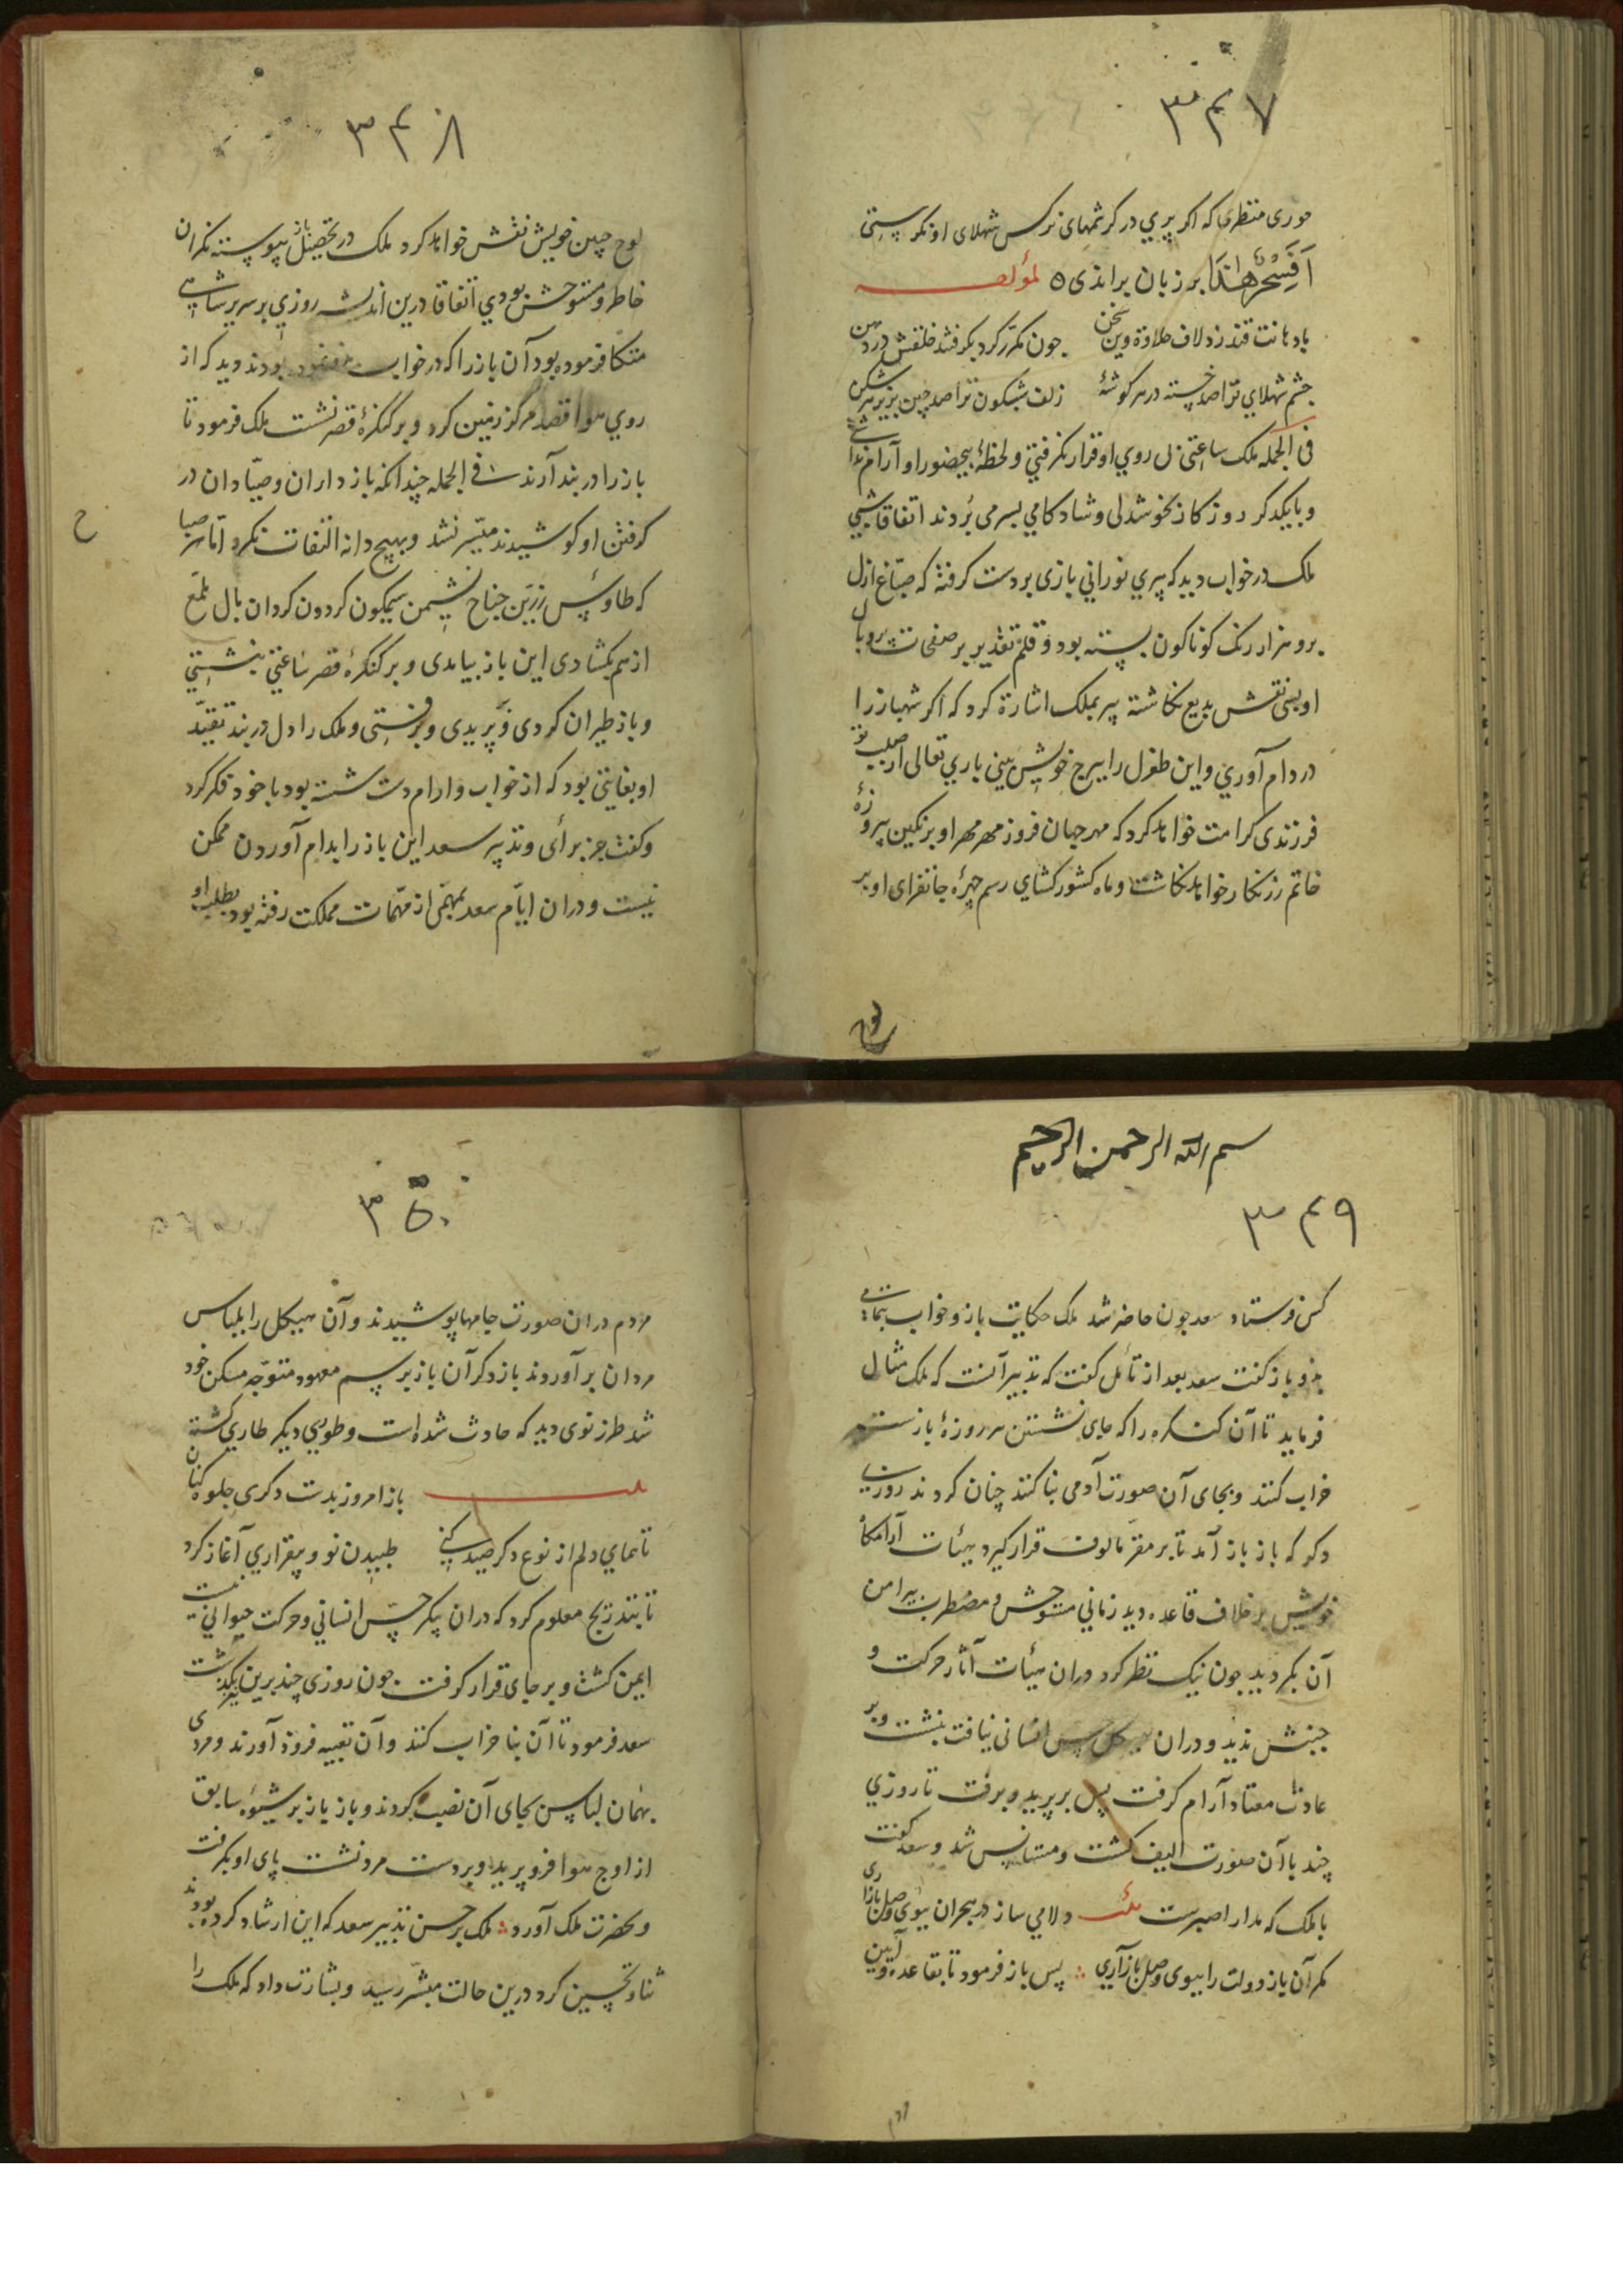 ۳۴۷
حوری منظری که اکر پری در کرشمهای نرکس شهلای او نکرپستی
اَفَسِحْرٌ هٰذَا بر زبان براندی ه لمؤلفه
با دهانت قند زد لاف حلاوة وین سخن جون مکرّر کرد بکرفتند خلقش در دهن
جشم شهلای تو را صد خسته در هر کوشهٔ زلف شبکون ترا صد چین بزیر هر شکن
فی الجمله ملک ساعتی بی روی او قرار نکرفتی و لحظهٔ بیحضور او آرام نداشتی
و با یکدکر روزکار بخوشدلی و شادکامی بسر می بردند اتفاقا شبی
ملک در خواب دید که پیری نورانی بازی بر دست کرفته که صبّاغ ازل
برو هزار رنک کوناکون بسته بود و قلم تقدیر بر صفحات پر و بال
او بسی نقش بدیع نکاشته پیر بملک اشارة کرد که اکر شهباز را
در دام آوری و این طغرل را ببرج خویش بینی باری تعالی از صلب تو
فرزندی کرامت خواهد کرد که مهر جهان فروز مهر مهر او بر نکین پیروزهٔ
خاتم زرنکار خواهد نکاشت و ماه کشورکشای رسم چهرهٔ جانفزای او بر
لوح
۳۴۸
لوح جبین خویش نقش خواهد کرد ملک در تحصیل باز پیوسته نکران
خاطر و مستوحش بودی اتفاقا درین اندیشه روزی بر سریر شاهی
متکا فرموده بود آن باز را که در خواب بودند دید که از
روی هوا قصد مرکز زمین کرد و بر کنکرهٔ قصر نشست ملک فرمود تا
باز را در بند آرند فی الجمله چندانکه بازداران و صیّادان در
کرفتن او کوشیدند میّسر نشد و بهیچ دانه التفات نکرد امّا هر صبا
ح
که طاوس زرّین جناح نشیمن سیمکون کردون کردان بال ملمّع
از هم بکشادی این باز بیامدی و بر کنکرهٔ قصر ساعتی بنشستی
و باز طیران کردی و پریدی و برفتی و ملک را دل در بند تقیّد
او بغایتی بود که از خواب و ارام دست شسته بود با خود فکر کرد
و کفت جز برای و تدپیر سعد این باز را بدام آوردن ممکن
نیست و دران ایّام سعد بمهمّی از مهّمات مملکت رفته بود بطلب او
بسم الله الرحمن الرحیم
۳۴۹
کس فرستاد سعد جون حاضر شد ملک حکایت باز و خواب بتمامی
بدو باز کفت سعد بعد از تأمل کفت که تدبیر آنست که ملک مثال
فرماید تا آن کنکره را که جای نشستن هر روزهٔ بازست
خراب کنند و بجای آن صورت آدمی بنا کنند چنان کردند روزی
دکر که باز باز آمد تا بر مقرّ مالوف قرار کیرد هیئات آرامکاه
خویش بر خلاف قاعده دید زمانی مستوحش و مضطرب پیرامن
آن بکردید جون نیک نظر کرد دران هیئات آثار حرکت و
جنبش ندید و دران هیکل حس انسانی نیافت بنشست و بر
عادت معتاد آرام کرفت پس بر پرید و برفت تا روزی
چند با آن صورت الیف کشت و مستانس شد و سعد کفت
با ملک که مدار اصبرست بیت دلا می ساز در هجران ببوی وصل بازاری
مکر آن باز دولت را ببوی وصل باز آری ∴ پس باز فرمود تا بقاعده و آیین
۳۵۰
مردم دران صورت جامها پوشیدند و آن هیکل را بلباس
مردان بر آوردند باز دکر آن باز بر رسم معهود متوّجه مسکن خود
شد طرز نوی دید که حادث شده است و طوری دیکر طاری کشته
بیت باز امروز بدست دکری جلوه کنان
تا همای دلم از نوع دکر صید کنی طپیدن نو و بیقراری آغاز کرد
تا بتدریج معلوم کرد که دران پیکر حسّ انسانی و حرکت حیوانی نیست
ایمن کشت و بر جای قرار کرفت جون روزی چند برین بکذشت
سعد فرمود تا آن بنا خراب کنند و آن تعبیه فروذ آورند و مردی
بهمان لباس بجای آن نصب کردند و باز باز بر شیوهٔ سابق
از اوج هوا فرو پرید و بر دست مرد نشست پای او بکرفت
و بحضرت ملک آورد ∴ ملک بر حسن تدبیر سعد که این ارشاد کرده بودند
ثنا و تحسین کرد درین حالت مبشّر رسید و بشارت داد که ملک را